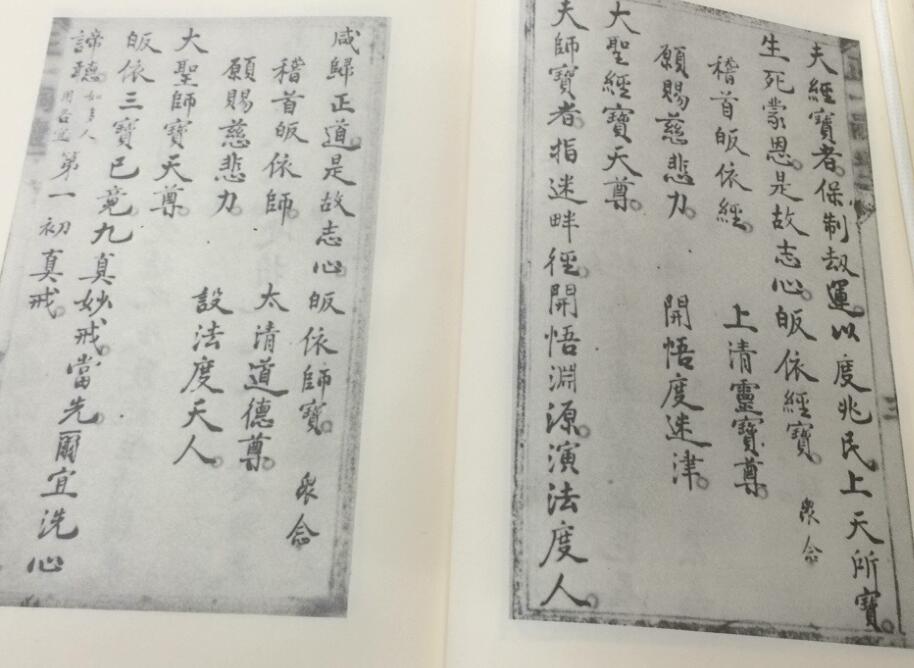 夫經寶者。保制劫運。以度兆民。上天所寶。
生死蒙恩。是故志心皈依經寶。 衆念
稽首皈依經。 上清靈寶尊。
願賜慈悲力。 開悟度迷津。
大聖經寶天尊
夫師寶者。指迷畔徑。開悟淵源。演法度人。
咸歸正道。是故志心皈依師寶。 衆念
稽首皈依師。 太清道德尊。
願賜慈悲力。 設法度天人。
大聖師寶天尊。
皈依三寶已竟。九真妙戒當先。爾宜洗心
諦聽。第一初真戒。